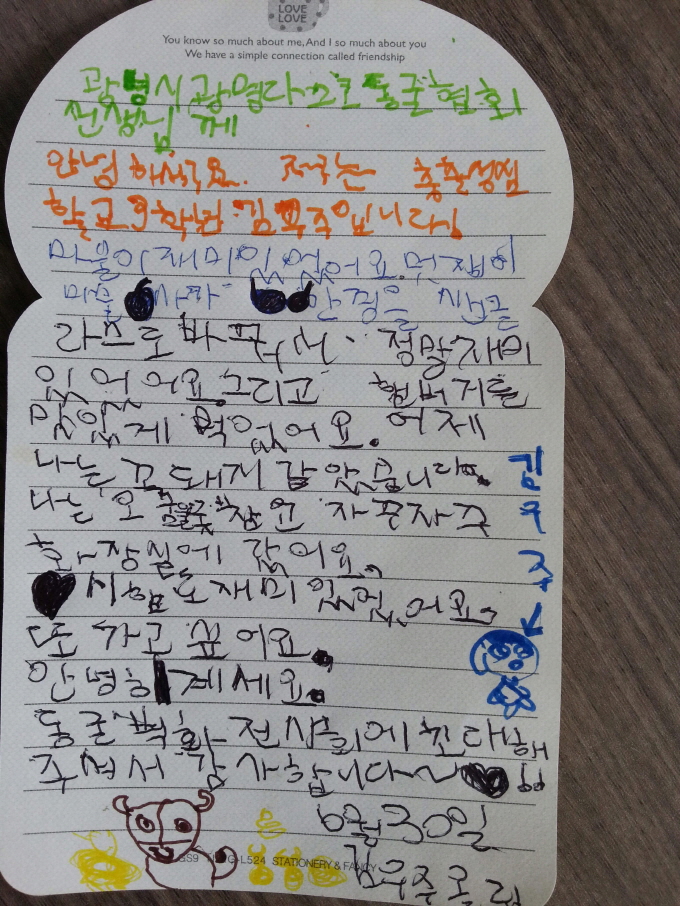 LOVE
LOVE
You know so much about me,And I so much about you
We have a simple connection called friendship
광명시 광명라스코 동굴협회
선생님께
안녕하세요. 저는
학교 학년 김우주입니다.
마술이 재미있었어요.
마술사가 안경을
라스코 정말재미
있어어요.그리고 햄버거를
맛있게 먹었어요. 어제
나는 꼬돼지 같았습니다.
나는 자꾸자꾸
화장실에 갔어요.
시험도재미있었어요.
또 가고 싶어요.
안녕히계세요.
동굴벽화 전시회에 초대해
주셔서 감사합니다~
6월30일
김우주올림
김우주
L524 STATIONERY & FANCY